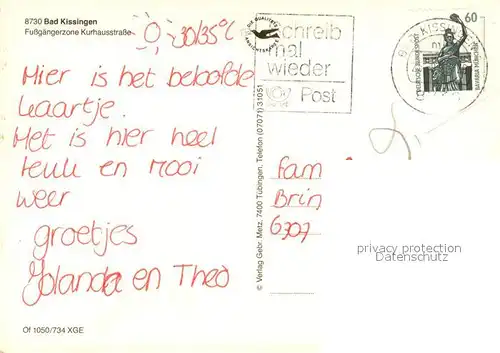 8730 Bad Kissingen
Fußgängerzone Kurhausstraße
30/35°C
Hier is het beloofde
kaartje.
Het is hier heel
leuk en mooi
weer
groetjes
Jolanda en Theo
Of 1050/734 XGE
© Verlag Gebr. Metz, 7400 Tübingen, Telefon (07071) 31051
Schreib
mal
wieder
Post
60
DEUTSCHE BUNDESPOST
BAVARIA MÜNCHEN
Fam
Brin
6307
privacy protection
Datenschutz